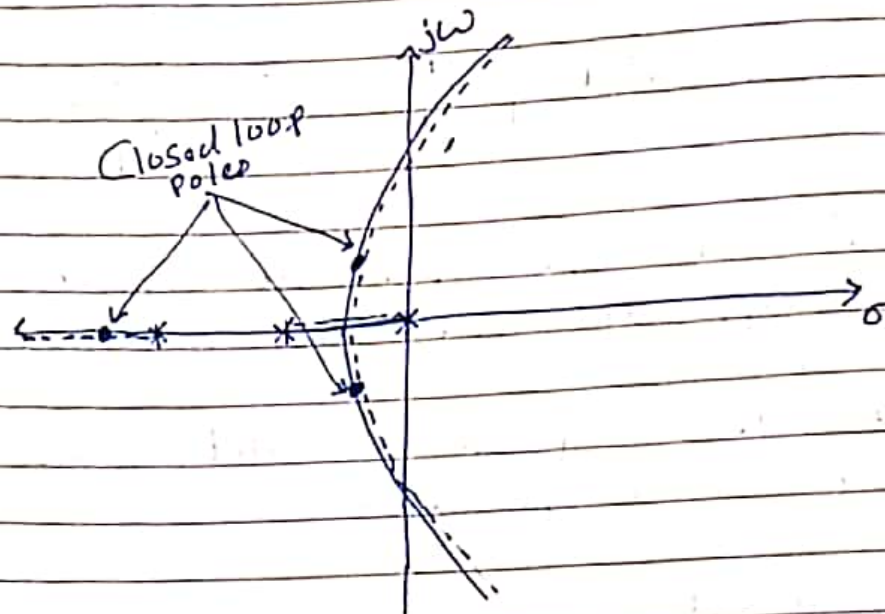 jω
Closed loop
poles
σ